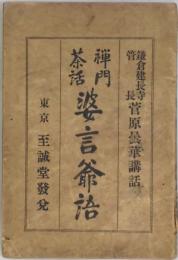 鎌倉建長寺
管長
菅原曇華講話
禪門
茶話
婆言爺語
東京 至誠堂發兌